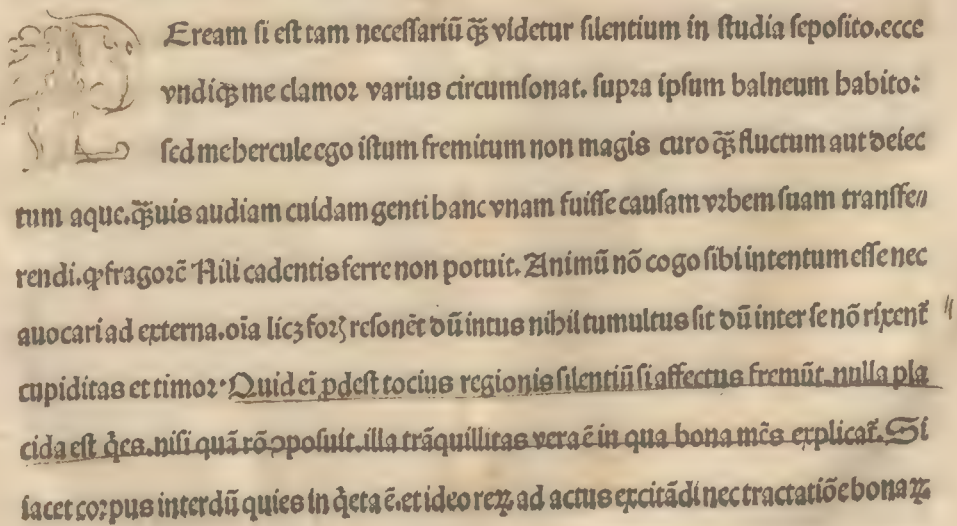 Eream ſi eſt tam neceſſariū q̄ꝫ videtur ſilentium in ſtudia ſepoſito.ecce
vndiqꝫ me clamoꝛ varius circumſonat. ſupꝛa ipſum balneum habito:
ſed mehercule ego iſtum fremitum non magis curo q̄ꝫ fluctum aut deiec
tum aque.q̄ꝫuis audiam cuidam genti hanc vnam fuiſſe cauſam vꝛbem ſuam tranſfe//
rendi.ꝙ fragoꝛē Nili cadentis ferre non potuit. Animū nō cogo ſibi intentum eſſe nec
auocari ad externa.oīa licꝫ foꝛꝭ reſonēt dū intus nihil tumultus ſit dū inter ſe nō rixent᷑
cupiditas et timoꝛ. Quid eī ꝓdeſt tocius regionis ſilentiū ſi affectus fremūt.nulla pla
cida eſt q̇es.niſi quā rō ↄpoſuit.illa trāquillitas vera ē in qua bona mēs explicat᷑. Si
iacet coꝛpus interdū quies in q̇eta ē.et ideo reꝝ ad actus excitādi nec tractatiōe bonaꝝ